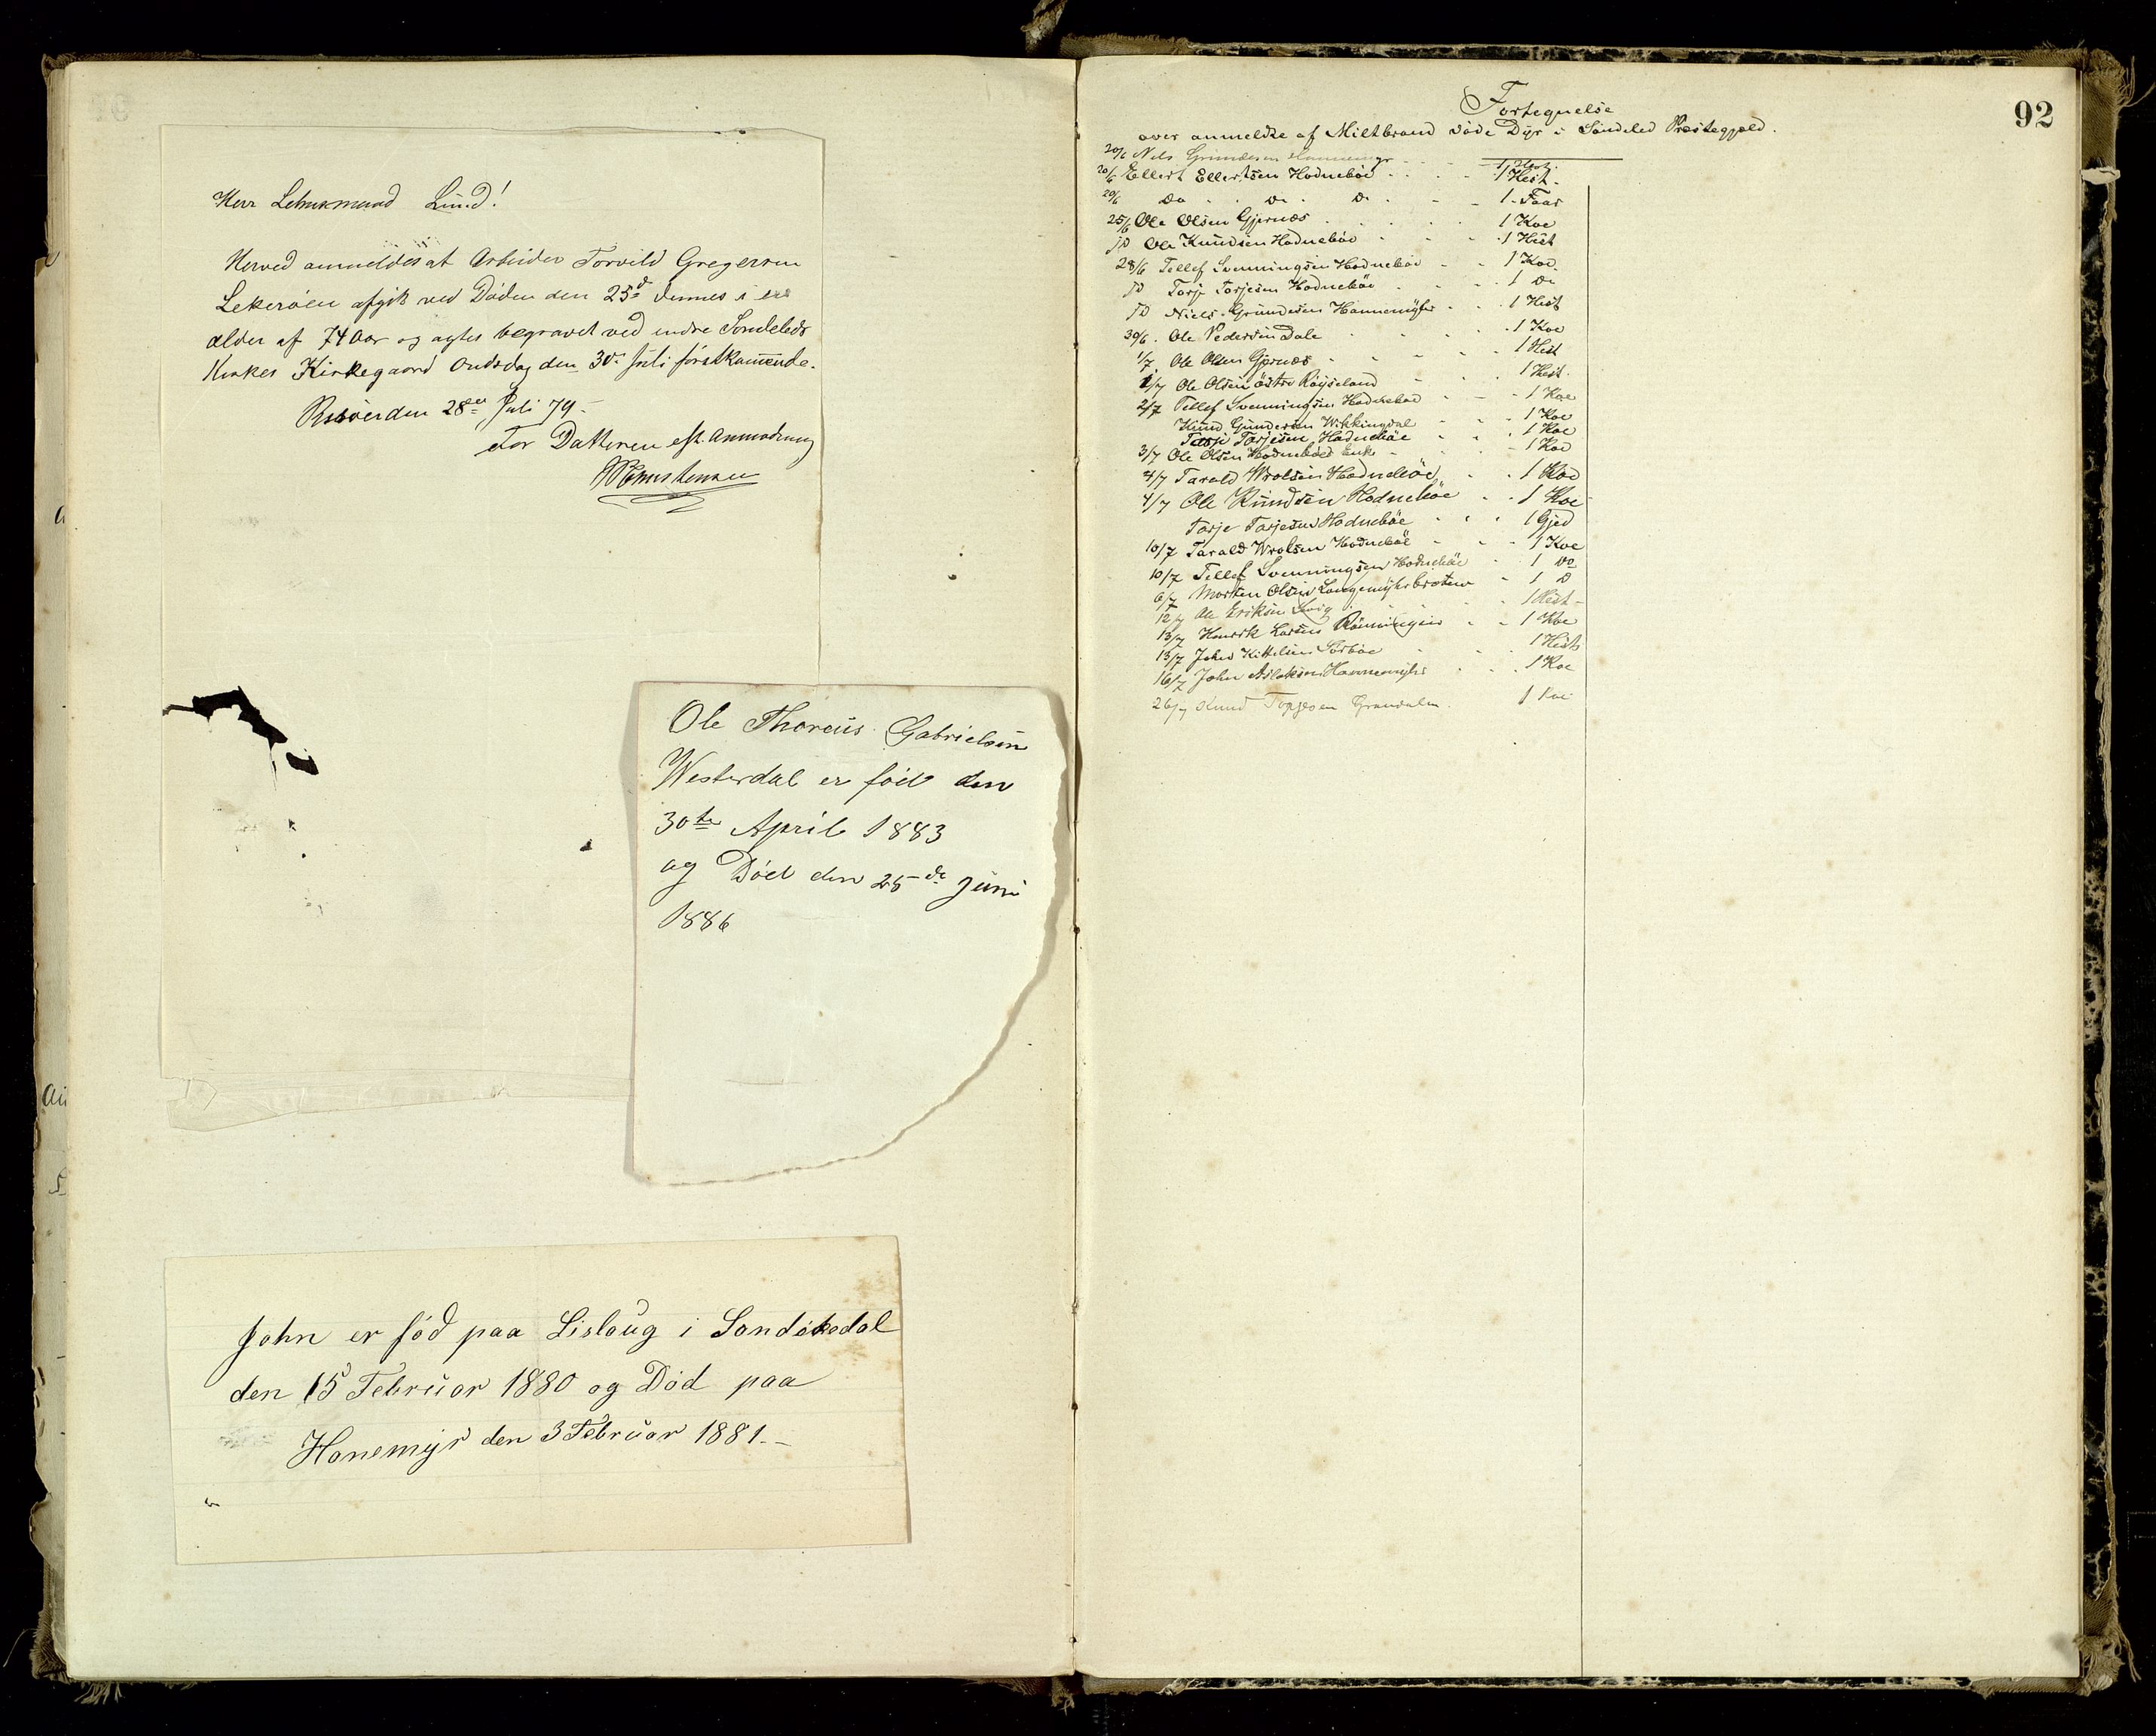 Herr Lehnsmand Lund!
Herved anmeldes at Arbeider Torvild Gregersen
Lekeröen afgik ved Döden den 25de dennes i en
alder af 74 Aar og agtes begravet ved indre Sondeleds
Kirkes Kirkegaard Onsdag den 30te Juli förstkommende.
Risöer den 28de Juli 79.
For Datteren eft. Anmodning
Ole Thoreus Gabrielsen
Westerdal er föd den
30te April 1883
og Död den 25de Juni
1886
John er föd paa Lislaug i Sandökedal
den 15 Februar 1880 og Död paa
Hanemyr den 3 Februar 1881.-
92
Fortegnelse
over anmeldte af Miltbrand döde Dyr i Söndeled Præstegjæld.
20/6 Nils Grundesen Hannemyr 1 Hest.
20/6 Ellert Ellertsen Hodneböe 1 Hest.
20/6 Do Do Do 1 Faar
25/6 Ole Olsen Gjernæs 1 Koe
JD Ole Knudsen Hodneböe 1 Hest
28/6 Tellef Svenningsen Hodneböe 1 Koe
JD Torje Torjesen Hodneböe 1 Do
JD Niels Grundesen Hannemyhr 1 Hest
30/6. Ole Pedersen Dale 1 Koe
1/7. Ole Olsen Gjernæs 1 Hest
1/7 Ole Olsen östre Röyseland 1 Hest.
2/7 Tellef Svenningsen Hodneböe 1 Koe
Knud Gundersen Wikkingdal 1 Koe
Tarje Tarjesen Hodneböe 1 Koe
3/7 Ole Olsen Hodneböes Enke 1 Koe
4/7 Tarald Wrolsen Hodneböe 1 Koe
4/7 Ole Knudsen Hodneböe 1 Koe
Tarje Tarjesen Hodneböe 1 Gjed
10/7 Tarald Wrolsen Hodneböe 1 Koe
10/7 Tellef Svenningsen Hodneböe 1 Do
6/7 Morten Olsen Langemyhrbraten 1 D
12/7 Ole Eriksen 1 Hest
13/7 Henrik Larsen Rönningen 1 Koe
13/7 John Kittelsen Sörböe 1 Hest
16/7 John Aslaksen Hannemyhr 1 Koe
26/7 Knud Torjesen Grandalen 1 Koe